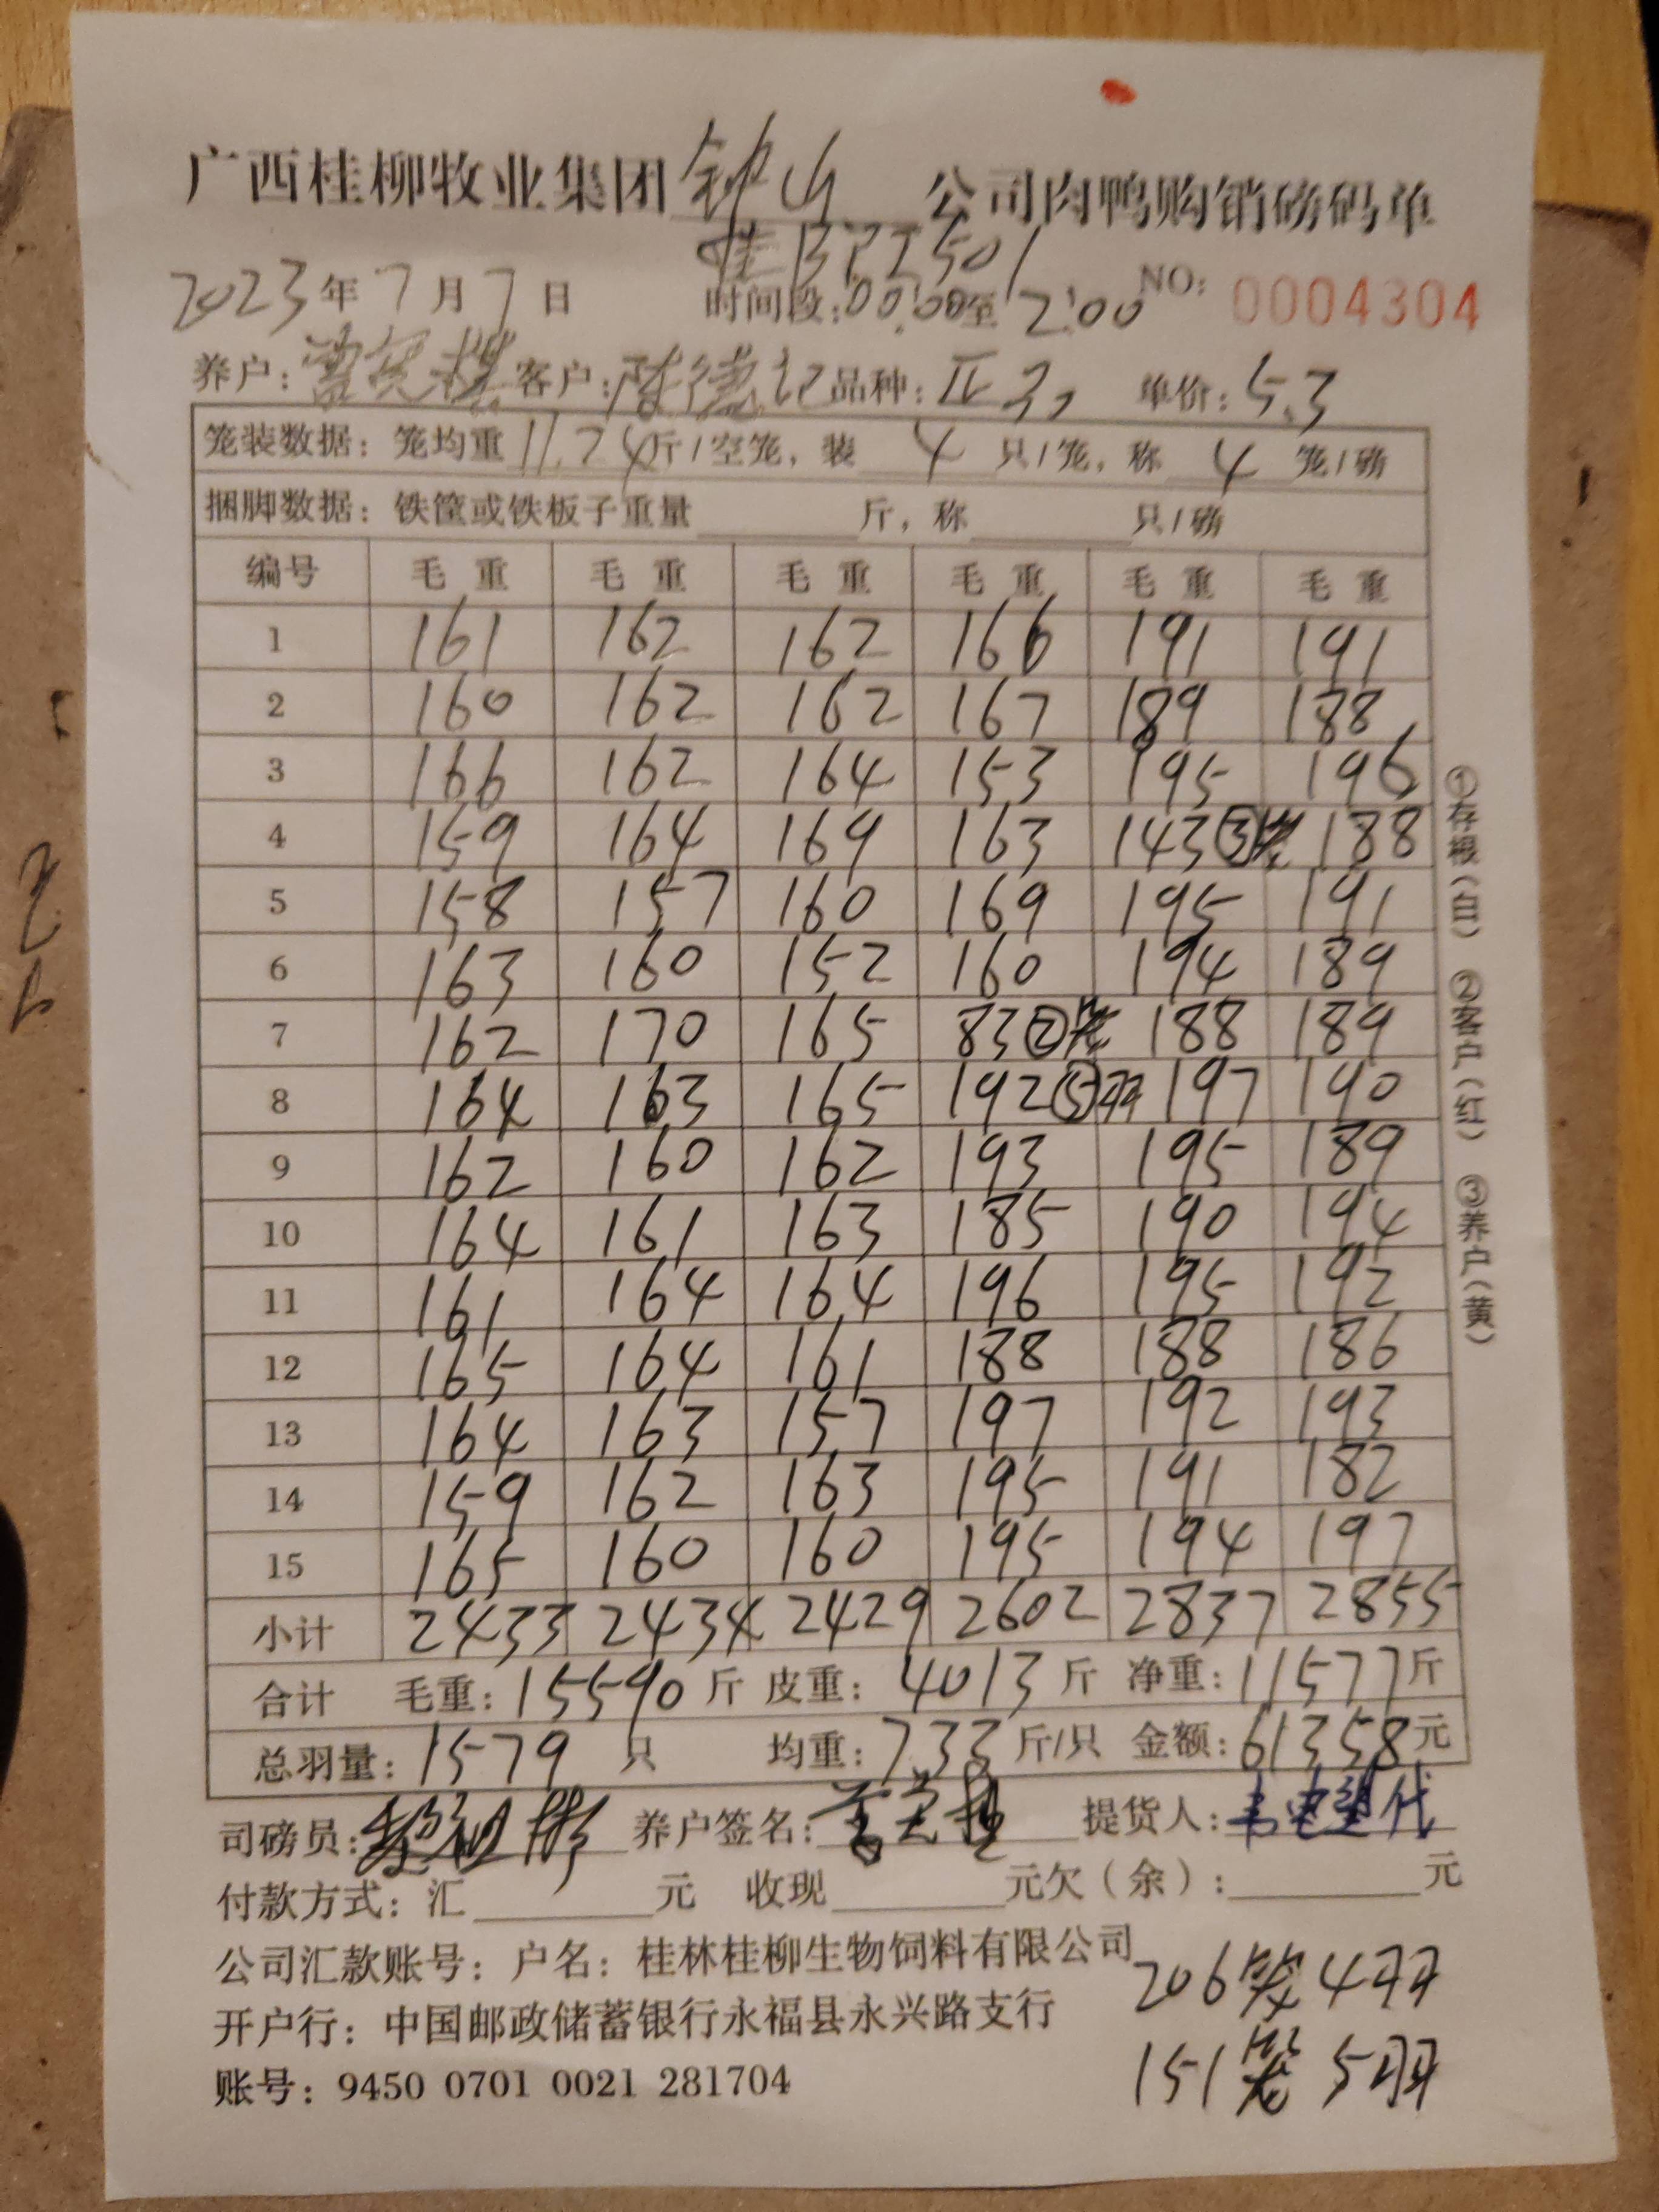 广西桂柳牧业集团钟山公司肉鸭购销磅码单
2023年7月7日 时间段:00:00至2:00 NO: 0004304
养户: 客户:陈德记 品种: 单价:5.3
笼装数据: 笼均重11.24斤/空笼, 装4只/笼, 称4笼/磅
捆脚数据: 铁筐或铁板子重量 斤, 称 只/磅
编号 毛重 毛重 毛重 毛重 毛重 毛重
1 161 162 162 166 191 191
2 160 162 162 167 189 188
3 166 162 164 153 195 196
4 159 164 169 163 143③笼 188
5 158 157 160 169 195 191
6 163 160 152 160 194 189
7 162 170 165 83②笼 188 189
8 164 163 165 192⑤羽 197 190
9 162 160 162 193 195 189
10 164 161 163 185 190 194
11 161 164 164 196 195 192
12 165 164 161 188 188 186
13 164 163 157 197 192 193
14 159 162 163 195 191 182
15 165 160 160 195 194 197
小计 2433 2434 2429 2602 2837 2855
合计 毛重:15590斤 皮重:4013斤 净重:11577斤
总羽量:1579只 均重:7.33斤/只 金额:61358元
司磅员: 养户签名: 提货人:
付款方式: 汇 元 收现 元欠(余): 元
公司汇款账号: 户名: 桂林桂柳生物饲料有限公司
206笼4羽
开户行: 中国邮政储蓄银行永福县永兴路支行
151笼5羽
账号: 9450 0701 0021 281704
①存根(白) ②客户(红) ③养户(黄)